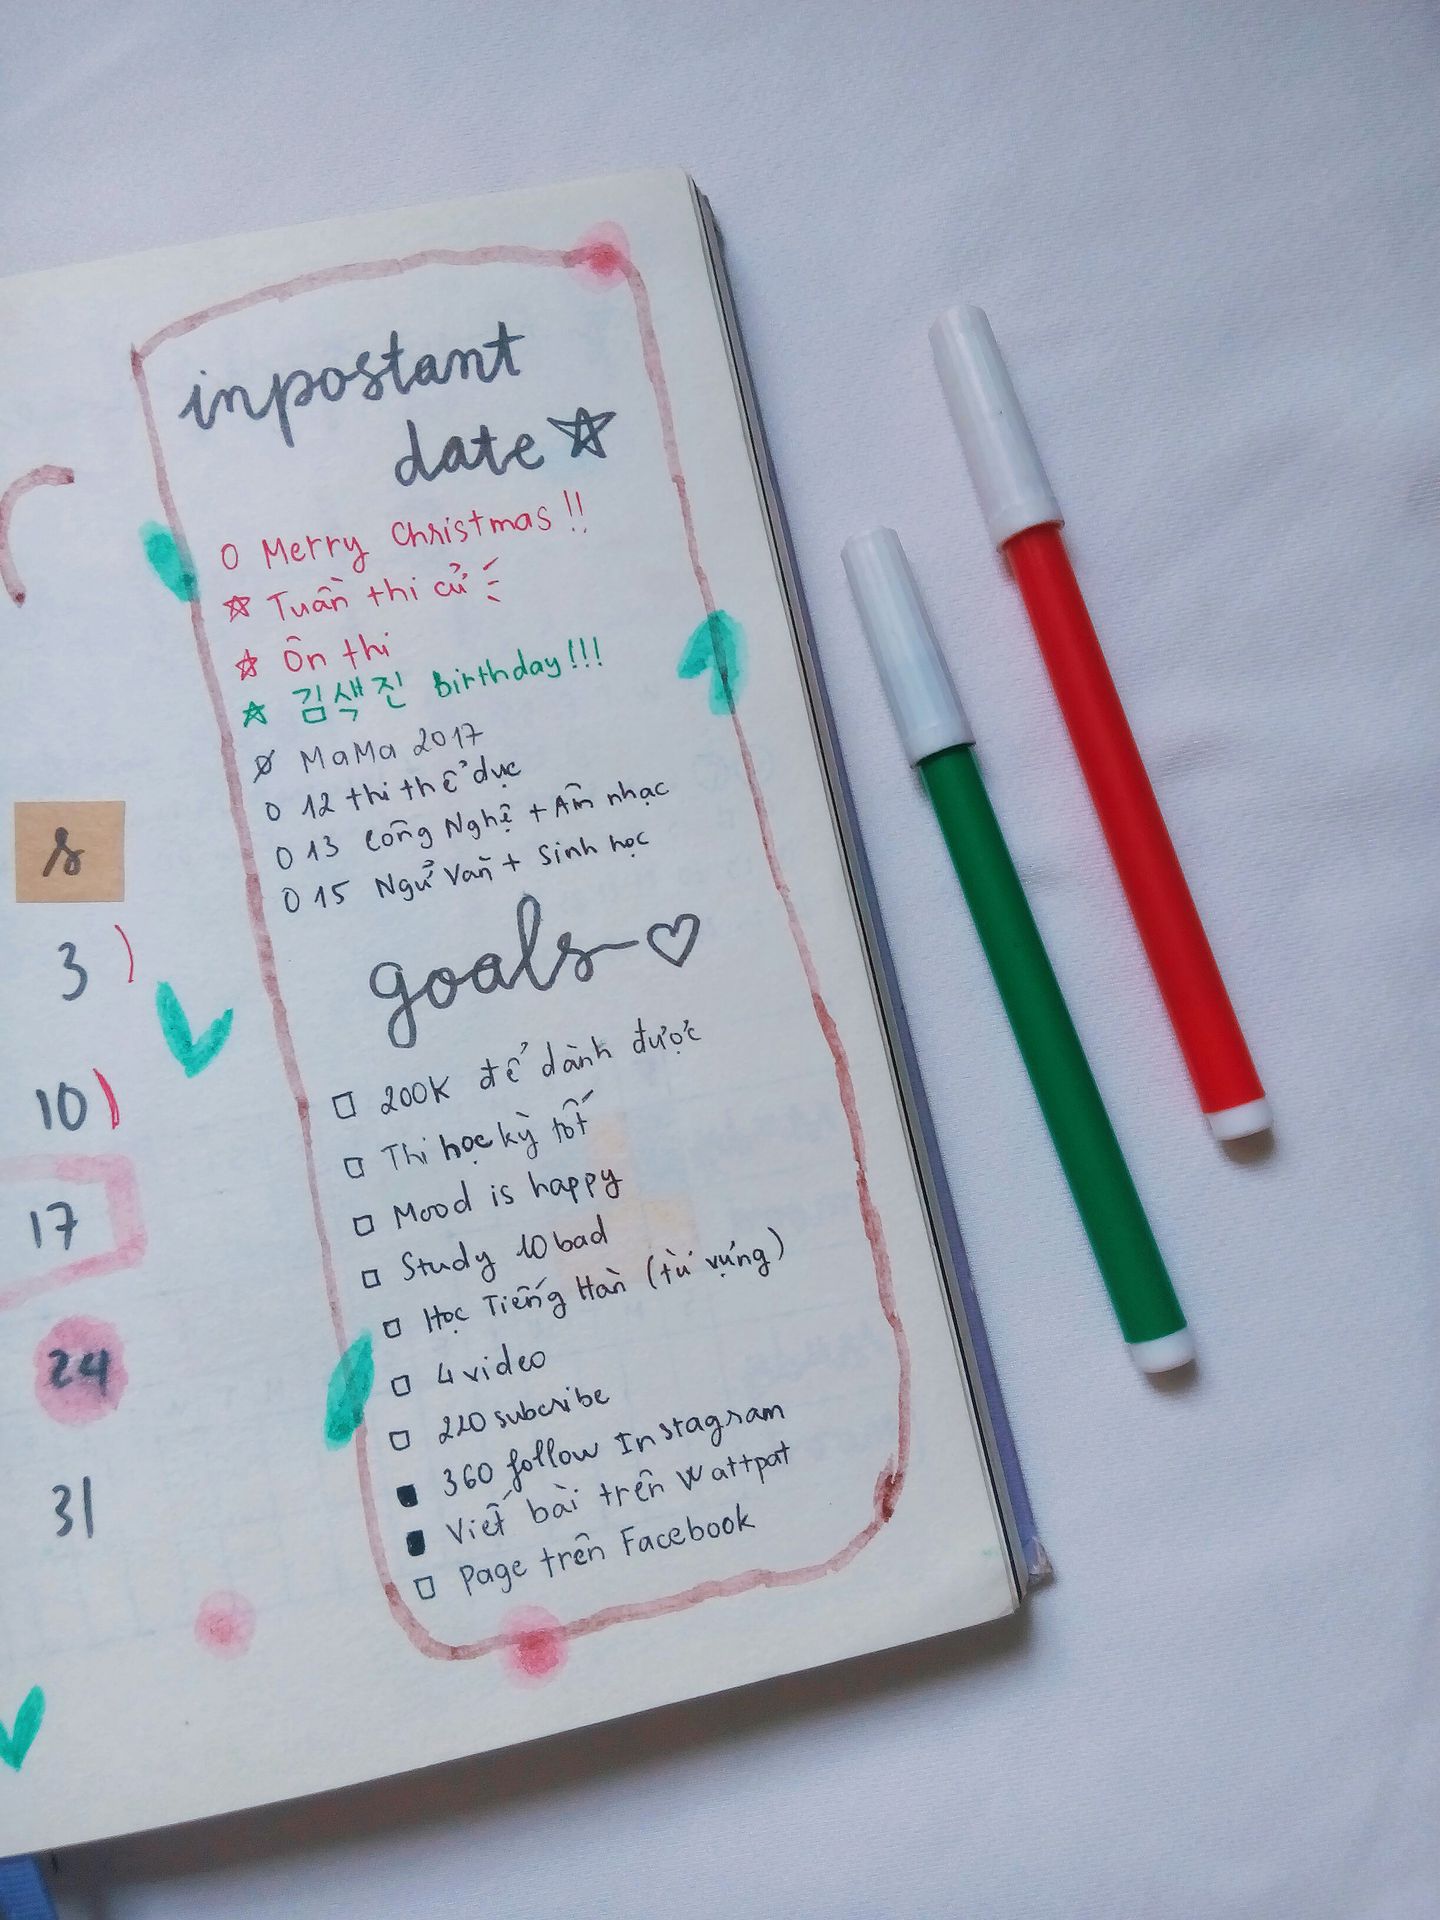 inpostant
date
Merry Christmas!!
Tuần thi cử
Ôn thi
김색진 Birthday!!!
MaMa 2017
12 thi thể dục
13 Công Nghệ + Âm nhạc
15 Ngữ Văn + Sinh học
goals
200K để dành được
Thi học kỳ tốt
Mood is happy
Study 10 bad
Học Tiếng Hàn (từ vựng)
4 video
220 subcribe
360 follow Instagram
Viết bài trên Wattpat
Page trên Facebook
s
3
10
17
24
31